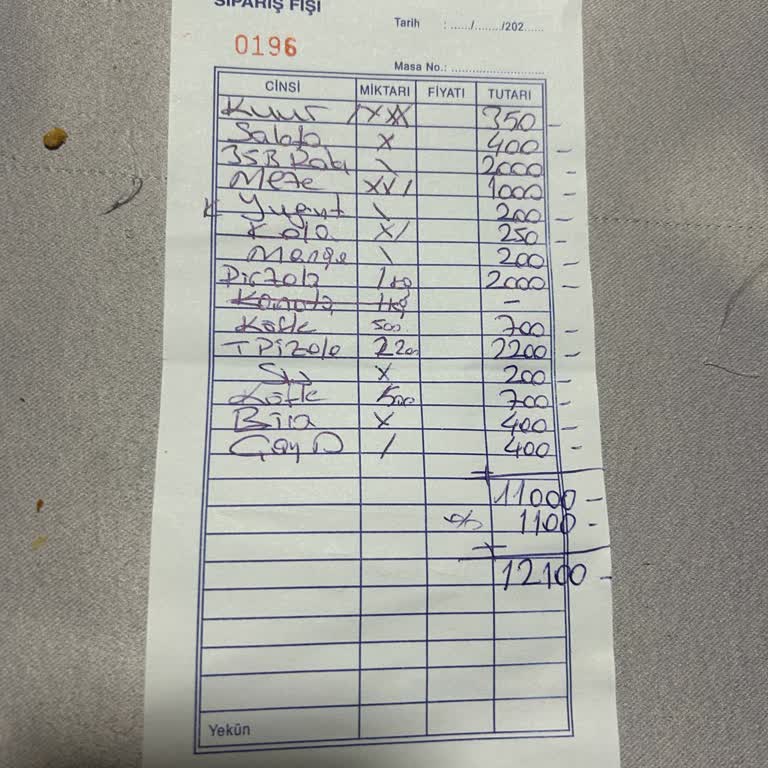 SİPARİŞ FİŞİ
Tarih : ....../......./202......
0196
Masa No.: ............................
CİNSİ MİKTARI FİYATI TUTARI
Kuver 350 -
Salata X 400 -
35B Rakı \ 2000 -
Meze XVI 1000 -
K. Yogurt \ 200 -
Kola X/ 250 -
\ 200 -
Pirzola 1kg 2000 -
-
Köfte 500 700 -
T Pizole 2200 2200 -
Su X 200 -
Köfte 500 700 -
Bira X 400 -
Çay D / 400 -
+ 11000 -
1100 -
+ 12100 -
Yekün